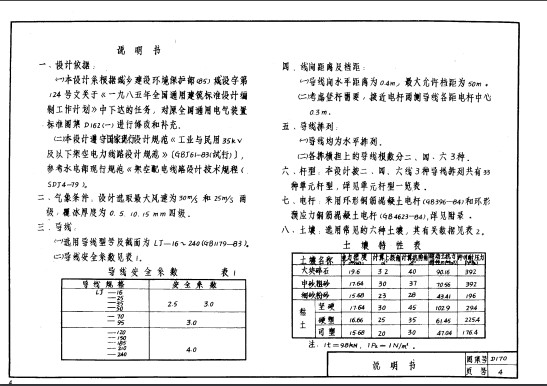 说 明 书
一、设计依据：
(一)本设计系根据城乡建设环境保护部(85)城设字第
124号文关于《一九八五年全国通用建筑标准设计编
制工作计划》中下达的任务，对原全国通用电气装置
标准图集D162(一)进行修改和补充。
(二)本设计遵守国家现行设计规范《工业与民用35kV
及以下架空电力线路设计规范》[GBJ61-83(试行)]，
参考水电部现行规范《架空配电线路设计技术规程(
SDJ4-79)。
二、气象条件：设计选取最大风速为30m/s 和25m/s 两
级，覆冰厚度为0.5.10.15mm四级。
三、导线：
(一)选用导线型号及截面为LJ-16～240(GB1179-83)。
(二)导线安全系数见表1。
导线安全系数 表1
导线规格 安全系数
LJ-16
-25
-35
-50
2.5 3.0
-70
-95
3.0
-120
-150
-185
-210
-240
4.0
四、线间距离及档距：
(一)导线间水平距离为0.4m，最大允许档距为50m。
(二)考虑登杆需要，接近电杆两侧导线各距电杆中心
0.3m。
五、导线排列：
(一)导线均为水平排列。
(二)各横担上的导线根数分二、四、六3种。
六、杆型：本设计按二、四、六线3种导线排列共有33
种单元杆型，详见单元杆型一览表。
七、电杆：采用环形钢筋混凝土电杆(GB396-84)和环形
预应力钢筋混凝土电杆(GB4623-84)，详见附录。
八、土壤：选用常见的六种土壤，其有关数据见表2。
土壤特性表
土壤名称
大块碎石 19.6 32 40 90.16 392
中砂粗砂 17.64 30 37 70.56 392
细砂粉砂 15.68 23 28 43.41 196
粘土
坚硬 17.64 30 45 102.9 294
硬塑 16.66 25 35 61.46 225.4
可塑 15.68 20 30 47.04 176.4
注：1t=9.8kN，1Pa=1N/m²。
说明书
图集号 D170
页号 4
4